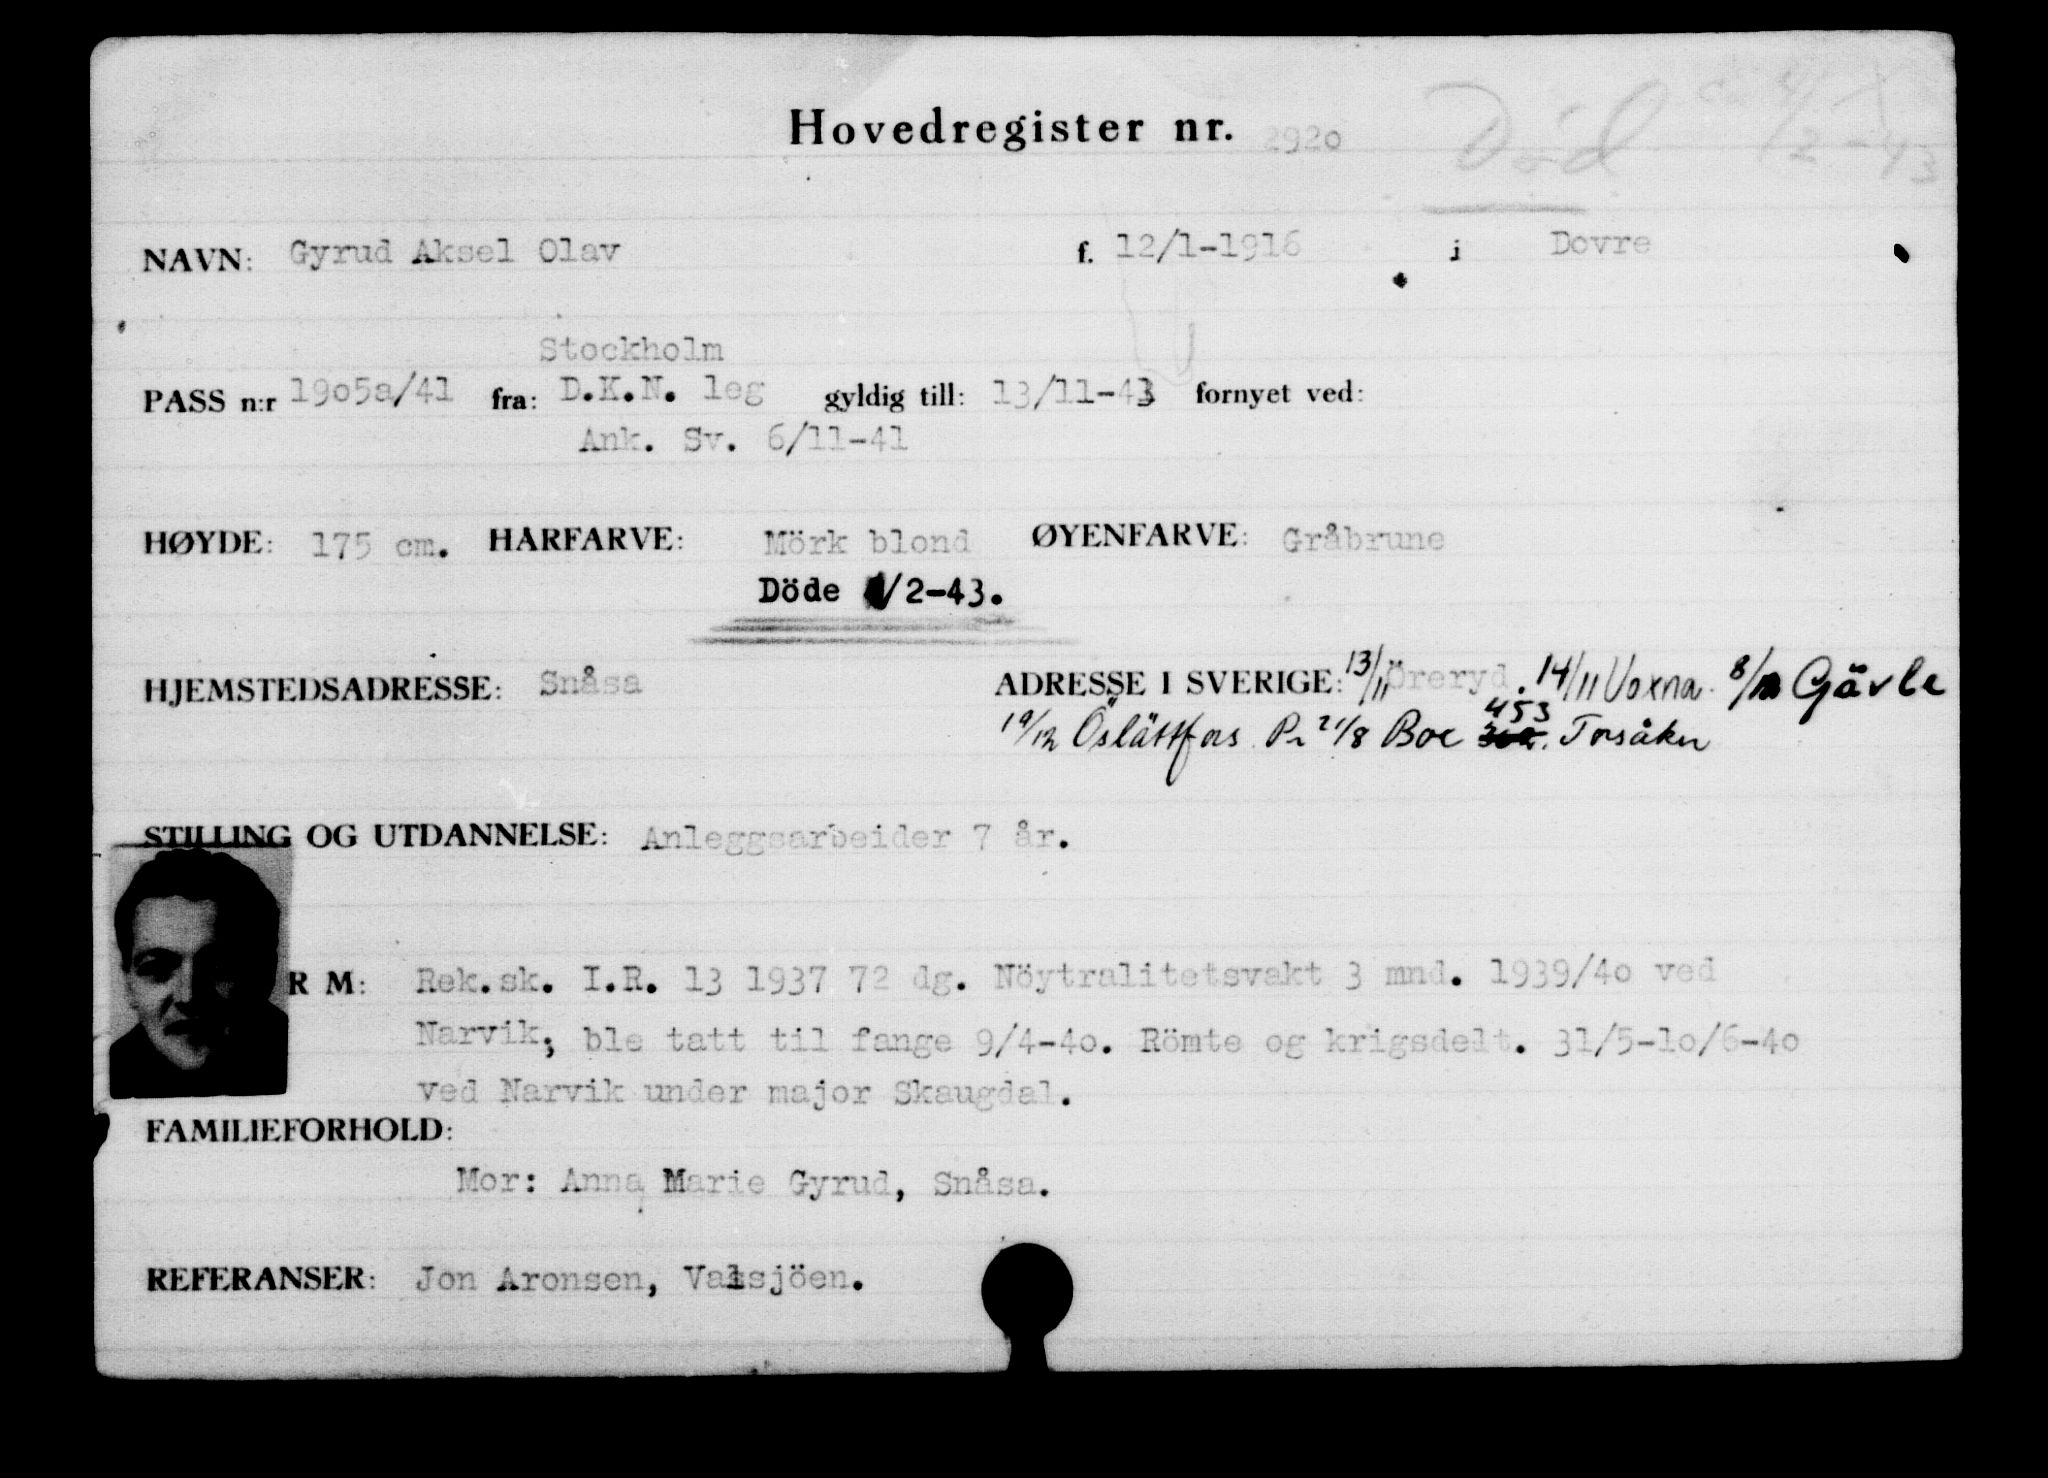 Hovedregister nr. 2920 Död 4/2-43
NAVN: Gyrud Aksel Olav f. 12/1-1916 i Dovre
Stockholm
PASS n:r 19o5a/41 fra: D.K.N. leg gyldig till: 13/11-43 fornyet ved:
Ank. Sv. 6/11-41
HØYDE: 175 cm. HARFARVE: Mörk blond ØYENFARVE: Gråbrune
Döde /2-43.
HJEMSTEDSADRESSE: Snåsa ADRESSE I SVERIGE: 13/11 Öreryd. 14/11 Voxna. 8/12 Gävle
19/12 Öslättfors Pr 21/8 Boc 453 Torsåker
STILLING OG UTDANNELSE: Anleggsarbeider 7 år.
R M: Rek.sk. I.R. 13 1937 72 dg. Nöytralitetsvakt 3 mnd. 1939/4o ved
Narvik; ble tatt til fange 9/4-4o. Römte og krigsdelt. 31/5-1o/6-4o
ved Narvik under major Skaugdal.
FAMILIEFORHOLD:
Mor: Anna Marie Gyrud, Snåsa.
REFERANSER: Jon Aronsen, Valsjöen.